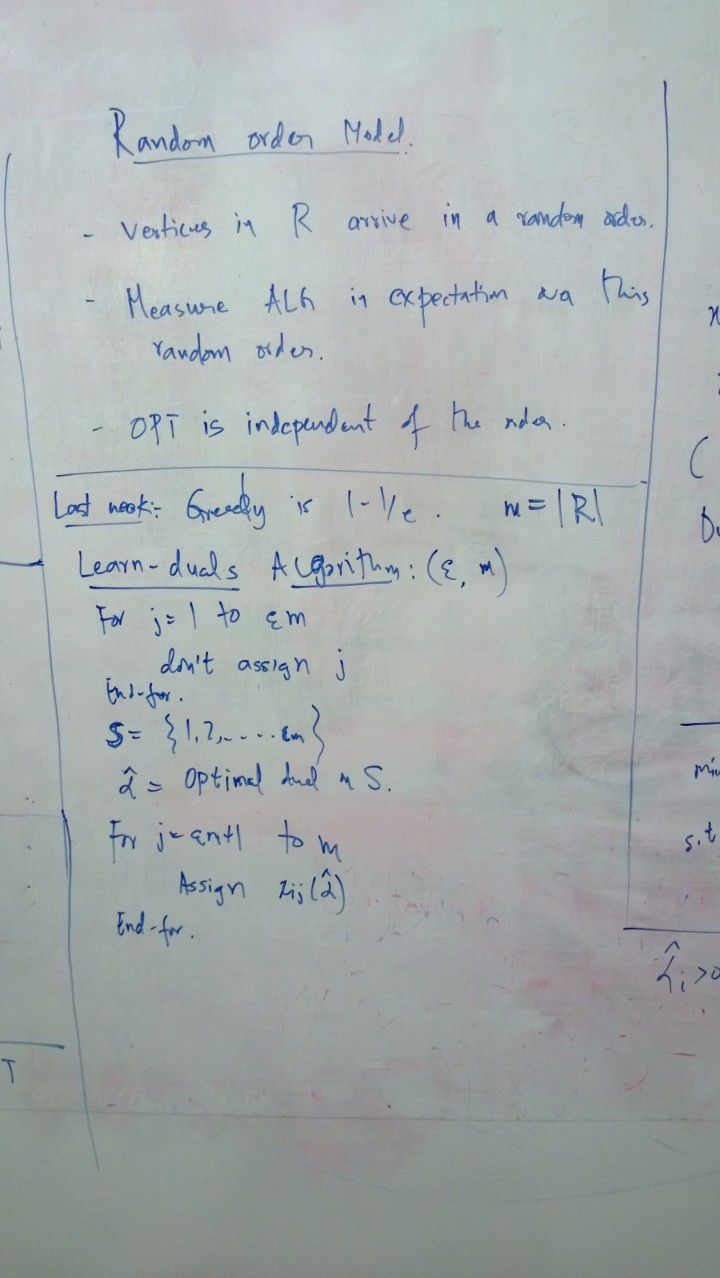 Random order Model.
- Vertices in R arrive in a random order.
- Measure ALG in expectation this
random order.
- OPT is independent of the order.
Last week:- Greedy is 1-1/e. m = |R|
Learn-duals Algorithm: (ε, m)
For j=1 to εm
don't assign j
End-for.
S = {1,2,.....εm}
α̂ = Optimal dual on S.
For j=εm+1 to m
Assign xij(α̂)
End-for.
min
s.t
T